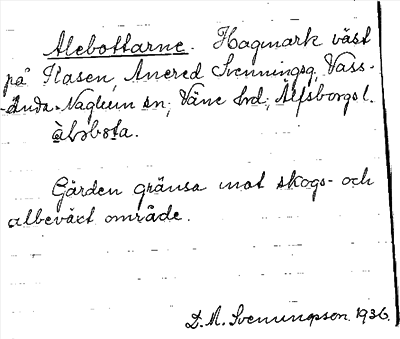 Alebottarne. Hagmark väst
på Åasen, Anered Svenningsg, Väss-
-ända-Naglum sn; Väne hrd; Älfsborgs l.
àləbɔta.
Gärden gränsa mot skogs- och
albeväxt område.
D. A. Svenningson. 1936.